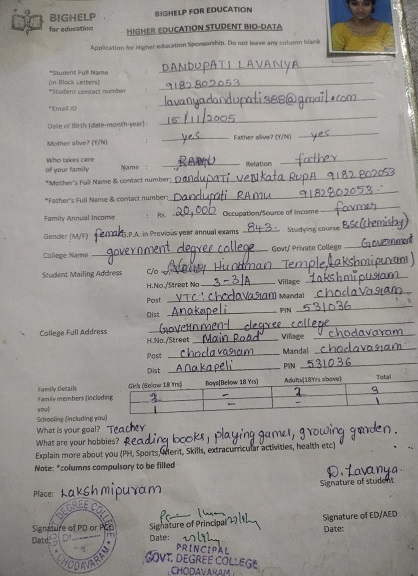 BIGHELP
for education
BIGHELP FOR EDUCATION
HIGHER EDUCATION STUDENT BIO-DATA
Application for Higher education Sponsorship. Do not leave any column blank
*Student Full Name : DANDUPATI LAVANYA
(in Block Letters)
*Student contact number 9182802053
*Email ID lavanyadandupati388@gmail.com
Date of Birth (date-month-year) : 15/11/2005
Mother alive? (Y/N) yes Father alive? (Y/N) yes
Who takes care of your family Name : RAMU Relation father
*Mother's Full Name & contact number: Dandupati venkata RupA 9182802053
*Father's Full Name & contact number: Dandupati RAMU 9182802053
Family Annual Income : Rs. 20,000 Occupation/Source of Income farmer
Gender (M/F) female G.P.A. in Previous year annual exams 843 Studying course BSc(chemistry)
College Name government degree college Govt/ Private College Government
Student Mailing Address C/o Hunuman Temple, Lakshmipuram)
H.No./Street No 3-31A Village Lakshmipuram
Post VTC: chodavaram Mandal chodavaram
Dist Anakapeli PIN 531036
College Full Address Government degree college
H.No./Street Main Road Village chodavaram
Post chodavaram Mandal chodavaram
Dist Anakapeli PIN 531036
Family Details Girls (Below 18 Yrs) Boys(Below 18 Yrs) Adults(18Yrs above) Total
Family members (including you) – 2
Schooling (including you) 1 – – 1
What is your goal? Teacher
What are your hobbies? Reading books, playing games, growing garden.
Explain more about you (PH, Sports, Merit, Skills, extracurricular activities, health etc)
Note: *columns compulsory to be filled
Place: Lakshmipuram
D. Lavanya
Signature of student
Signature of PD or PC
Date:
Signature of Principal
Date:
Signature of ED/AED
Date:
DEGREE COLLEGE
CHODAVARAM
PRINCIPAL
GOVT. DEGREE COLLEGE
CHODAVARAM